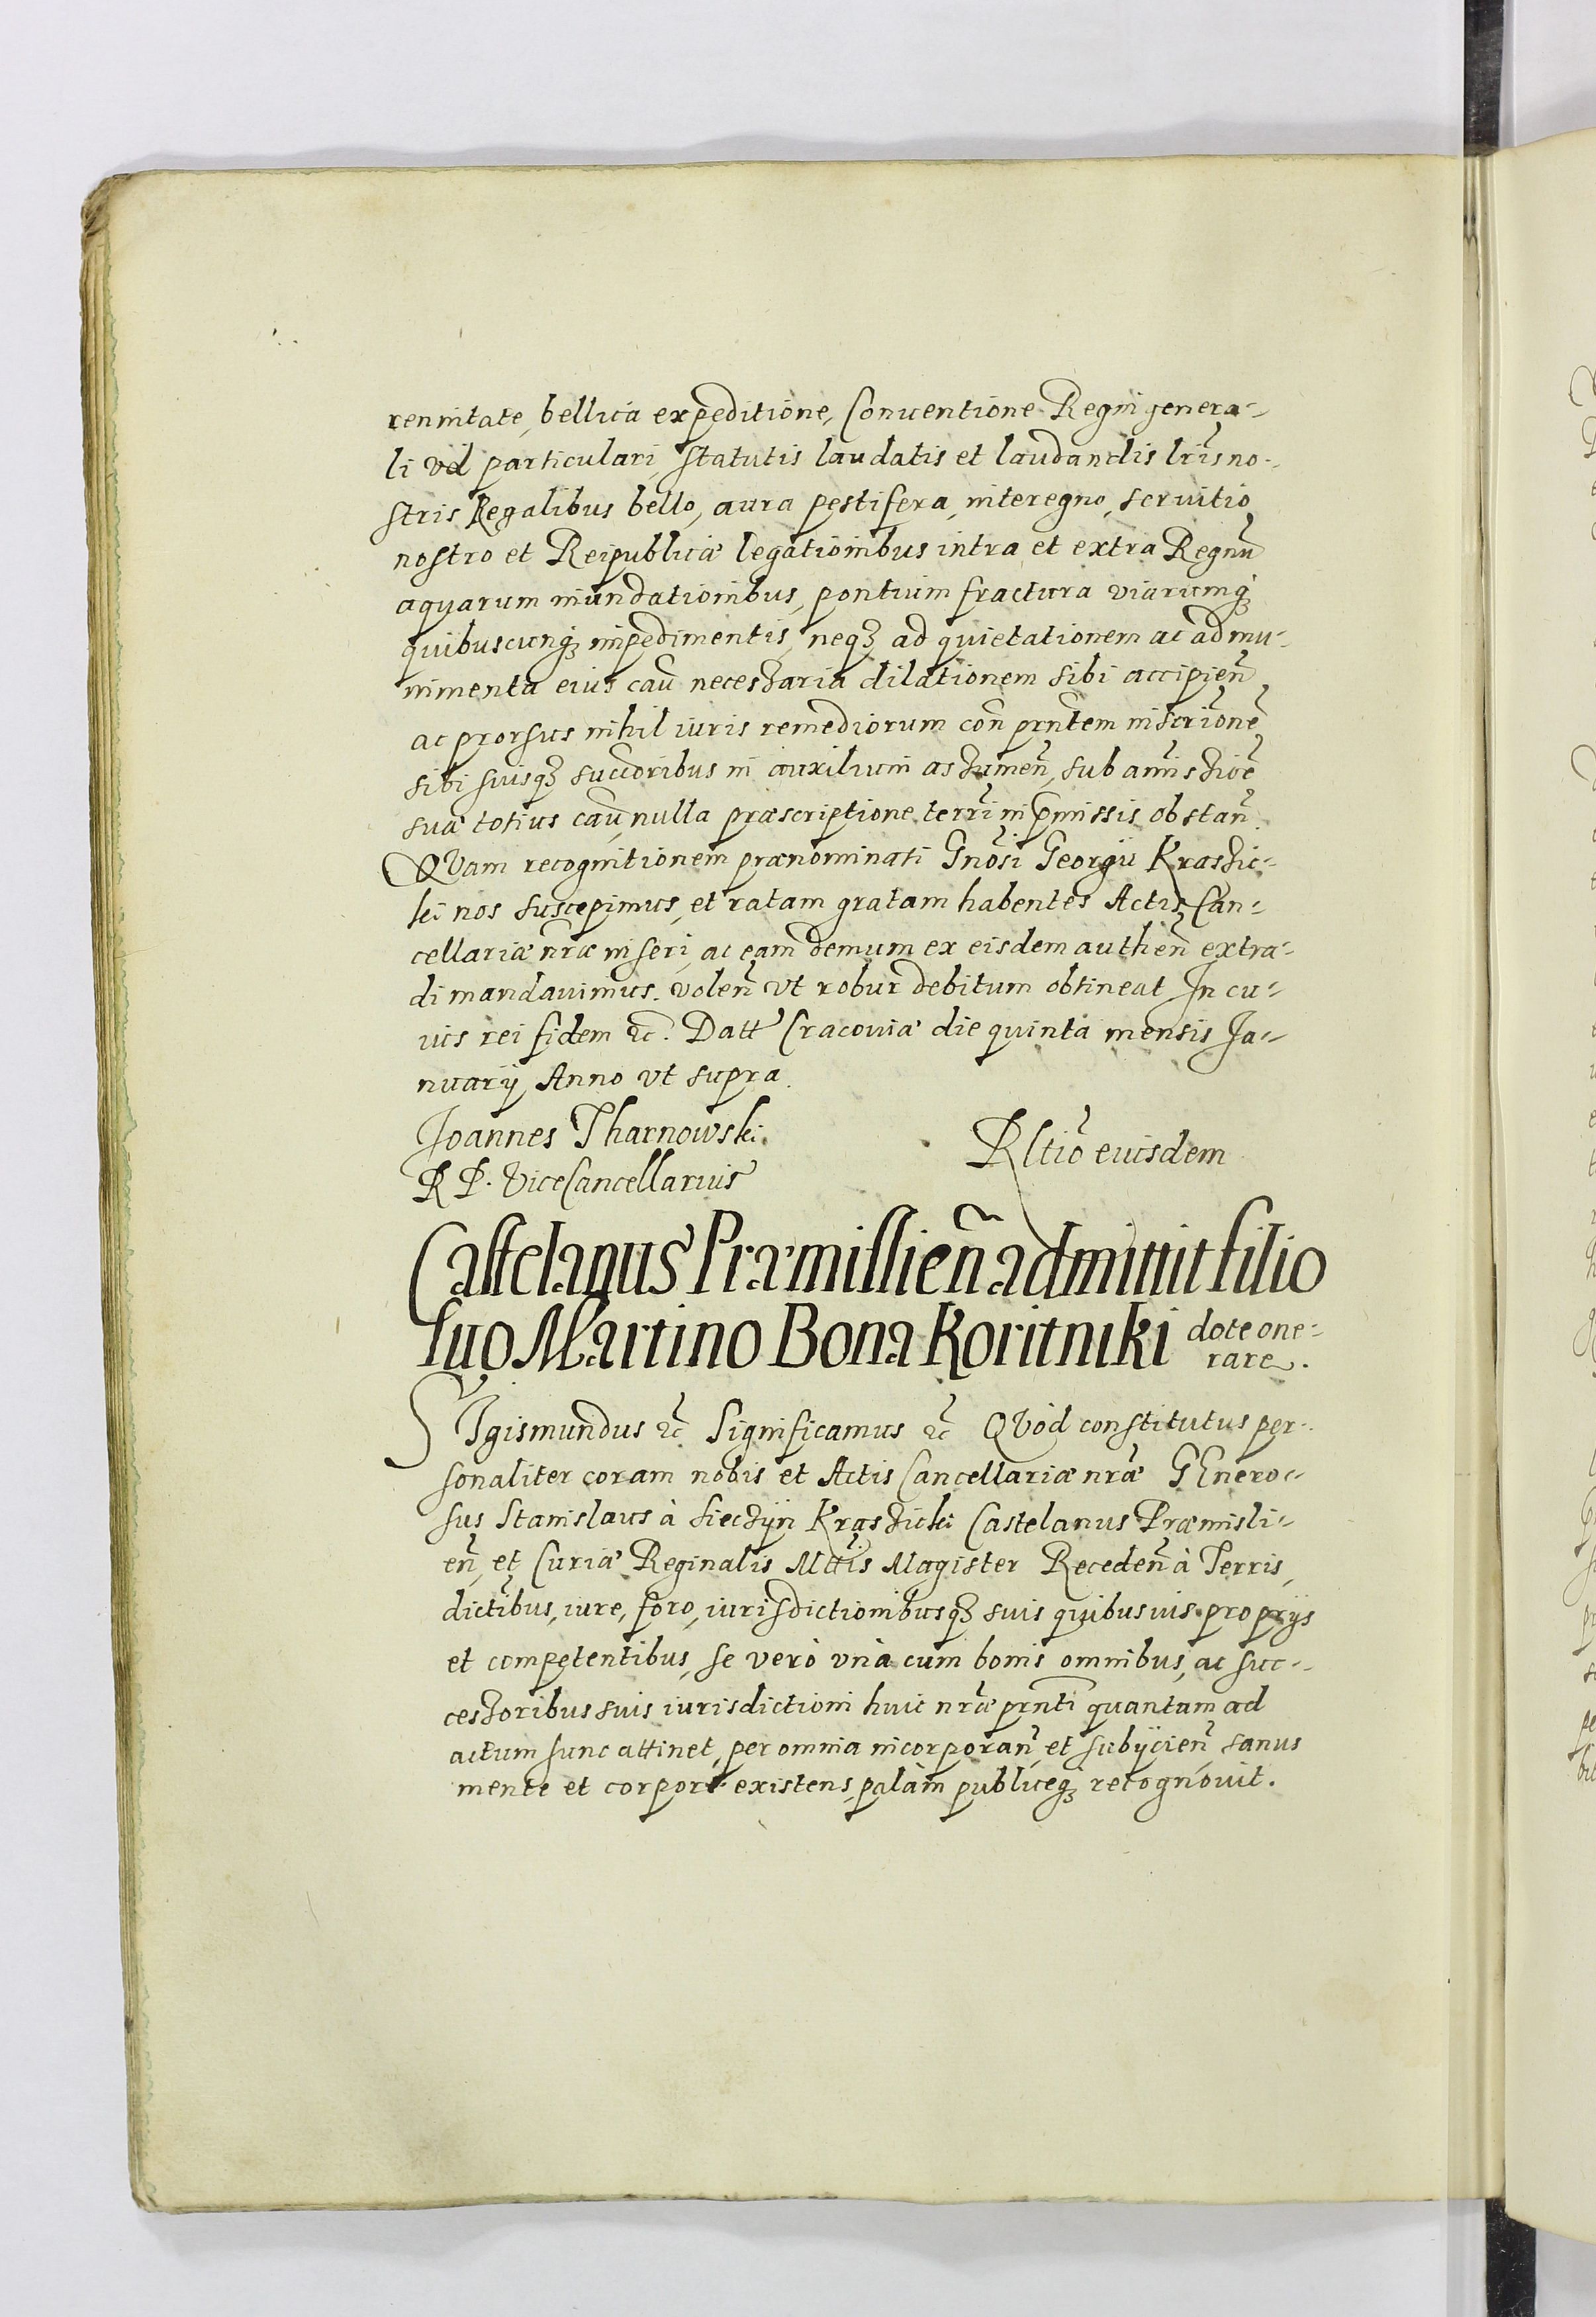 rennitate, bellica expeditione, Conuentione Regni genera-
li vel particulari, statutis laudatis et laudandis lris no-
stris Regalibus bello, aura pestifera, interegno, seruitio
nostro et Reipublicæ legationibus intra et extra Regnũ
aquarum inundationibus, pontium fractura viarumq;
quibuscunq; impedimentis, neq; ad quietationem ac ad mu-
nimenta eius cau necessaria dilationem sibi accipieñ
ac prorsus nihil iuris remediorum coñ prñtem inscrionẽ
sibi suisq; succoribus in auxilium assumeñ, sub amissioẽ
suæ totius cau, nulla præscriptione terri in pmissis obstañ.
QVam recognitionem prænominati Gnosi Georgii Krassic-
ki nos suscepimus, et ratam gratam habentes Actis Can-
cellariæ nræ inseri, ac eam demum ex eisdem autheñ extra-
di mandauimus. voleñ vt robur debitum obtineat In cu-
ius rei fidem &c. Datt Cracouiæ die quinta mensis Ja-
nuarij Anno vt supra.
Joannes Tharnowski
R P. ViceCancellarius
Rltio euisdem
Castelanus Præmislieñ admittit filio
suo Martino Bona Koritniki dote one-
rare.
SIgismundus &c Significamus &c QVòd constitutus per-
sonaliter coram nobis et Actis Cancellariæ nræ GEnero-
sus Stanislaus à Siecżyn Krassicki Castelanus Præmisli-
eñ, et Curiæ Reginalis Mttis Magister Recedeñ à Terris,
dictibus, iure, foro, iurisdictionibusq; suis quibusuis proprijs
et competentibus, se verò vnà cum bonis omnibus, ac suc-
cessoribus suis iurisdictioni huic nræ prñti quantum ad
actum hunc attinet, per omnia incorporañ, et subijcieñ sanus
mente et corpore existens, palàm publiceq; recognouit.